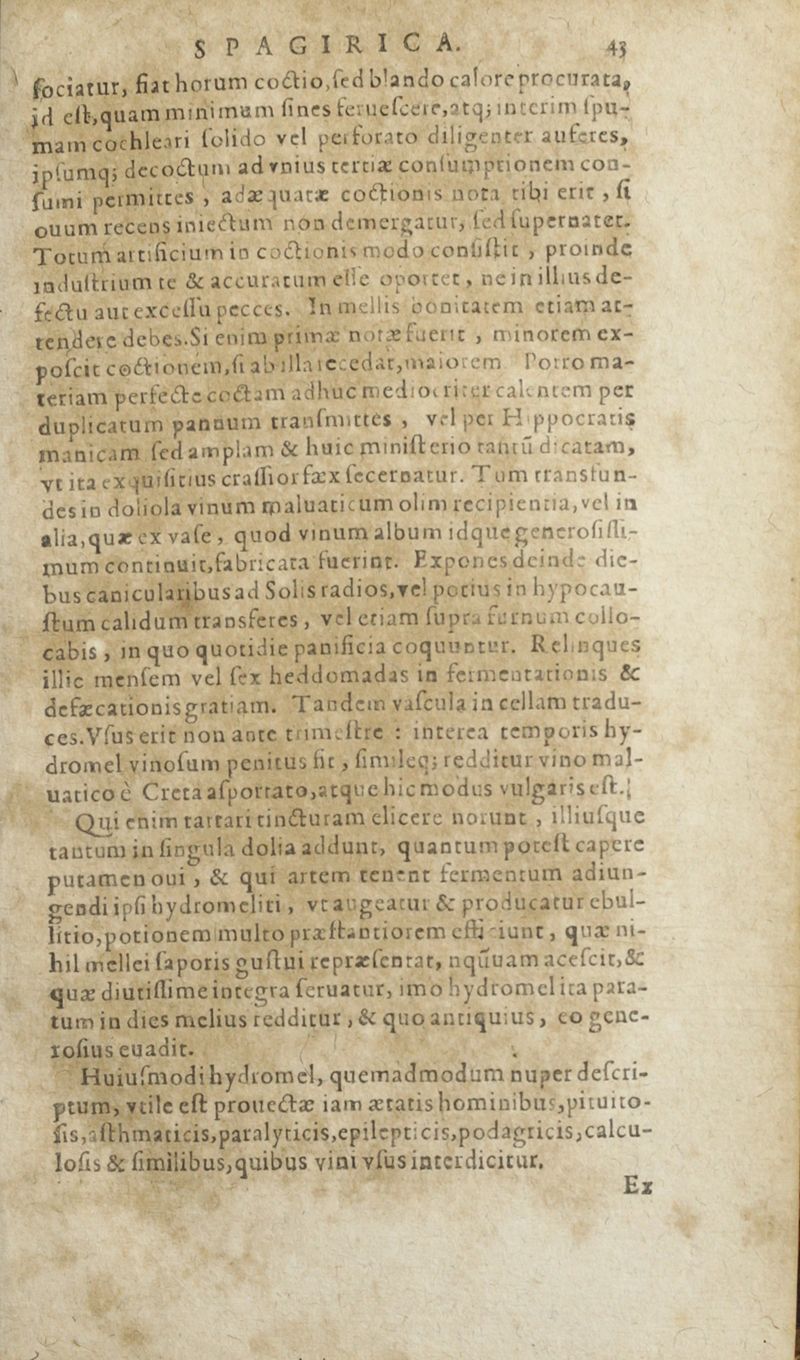 SPAGIRICA. 43
ſociatur, fiat horum coctio, ſed blando calore procurata,
id eſt, quam minimum ſines feruefcere, atq; interim ſpu-
mam cochleari ſolido vel perforato diligenter auferes,
ipſumq; decoctum ad vnius tertiæ conſumptionem con-
ſumi permittes, adæquatæ coctionis nota tibi erit, ſi
ouum recens iniectum non demergatur, ſed ſupernatet.
Totum artificium in coctionis modo conſiſtit, proinde
induſtrium te & accuratum eſſe oportet, ne in illius de-
fectu aut exceſſu pecces. In mellis bonitatem etiam at-
tendere debes. Si enim primæ notæ fuerit, minorem ex-
poſcit coctionem, ſi ab illa recedat, maiorem. Porro ma-
teriam perfecte coctam adhuc mediocriter calentem per
duplicatum pannum tranſmittes, vel per Hippocratis
manicam ſed amplam & huic miniſterio tantū dicatam,
vt ita exquiſitius craſſior fæx ſecernatur. Tum transfun-
des in doliola vinum maluaticum olim recipientia, vel in
alia, quæ ex vaſe, quod vinum album idque generoſiſſi-
mum continuit, fabricata fuerint. Expones deinde die-
bus canicularibus ad Solis radios, vel potius in hypocau-
ſtum calidum transferes, vel etiam ſupra furnum collo-
cabis, in quo quotidie panificia coquuntur. Relinques
illic menſem vel ſex heddomadas in fermentationis &
defæcationis gratiam. Tandem vaſcula in cellam tradu-
ces. Vſus erit non ante trimeſtre : interea temporis hy-
dromel vinoſum penitus fit, ſimuleq; redditur vino mal-
uatico è Creta aſportato, atque hic modus vulgaris eſt.
Qui enim tartari tincturam elicere norunt, illiuſque
tantum in ſingula dolia addunt, quantum poteſt capere
putamen oui, & qui artem tenent fermentum adiun-
gendi ipſi hydromeliti, vt augeatur & producatur ebul-
litio, potionem multo præſtantiorem efficiunt, quæ ni-
hil mellei ſaporis guſtui repræſentat, nquuam aceſcit, &
quæ diutiſſime integra ſeruatur, imo hydromel ita para-
tum in dies melius redditur, & quo antiquius, eo gene-
roſius euadit.
Huiuſmodi hydromel, quemadmodum nuper deſcri-
ptum, vtile eſt prouectæ iam ætatis hominibus, pituito-
ſis, aſthmaticis, paralyticis, epilepticis, podagricis, calcu-
loſis & ſimilibus, quibus vini vſus interdicitur.
Ex